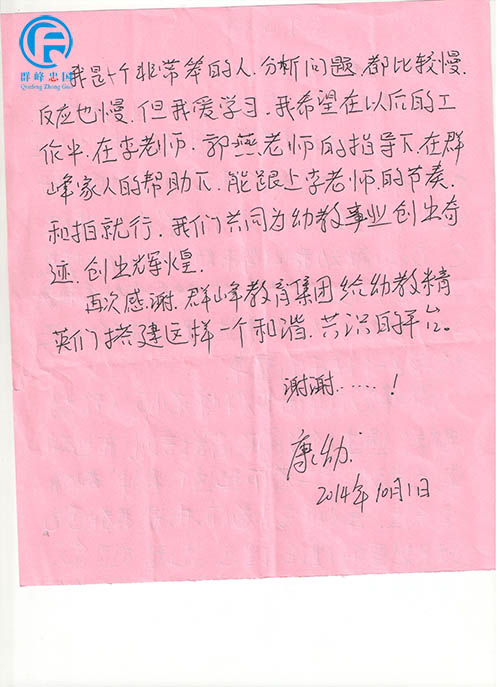 群峰忠国
Qunfeng Zhong Guo
我是一个非常笨的人.分析问题.都比较慢.
反应也慢.但我爱学习.我希望在以后的工
作中.在李老师.郭燕老师的指导下.在群
峰家人的帮助下.能跟上李老师.的节奏.
和拍就行.我们共同为幼教事业创出奇
迹.创出辉煌.
再次感谢.群峰教育集团给幼教精
英们搭建这样一个和谐.共识的平台。
谢谢......!
康幼.
2014年10月1日